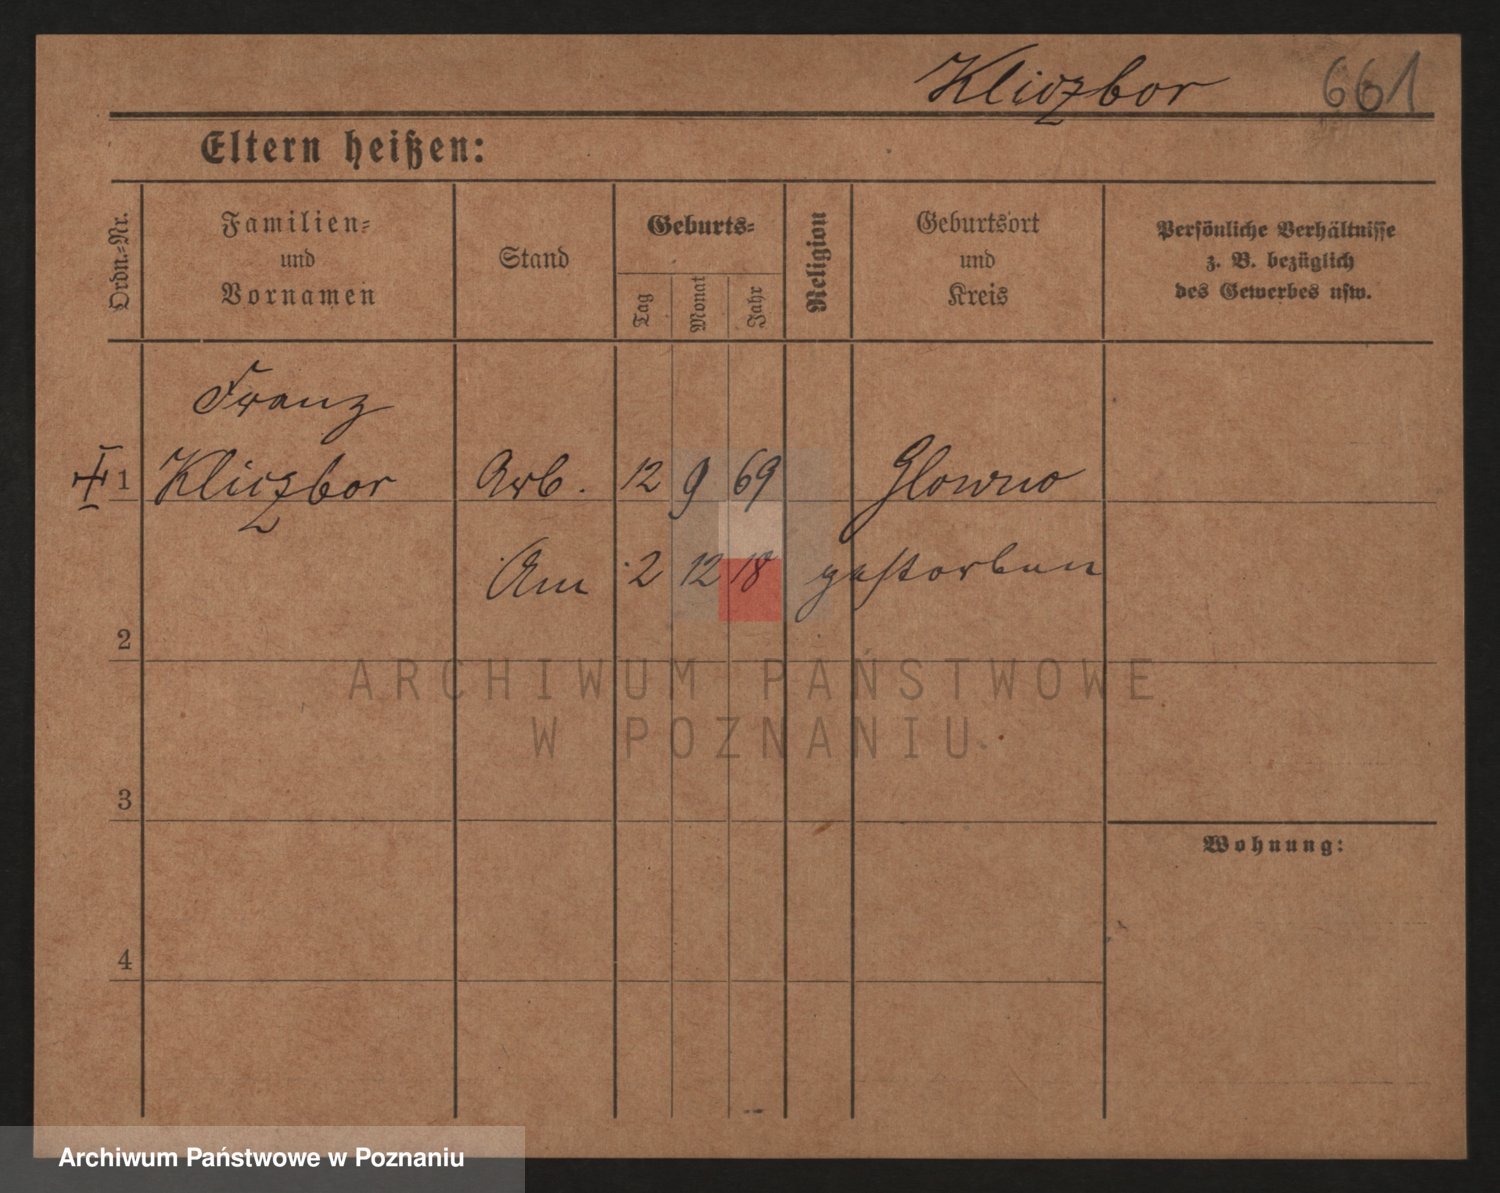 Kliczbor 661
Eltern heißen:
Ordn.-Nr.
Familien-
und
Vornamen
Stand
Geburts-
Tag
Monat
Jahr
Religion
Geburtsort
und
Kreis
Persönliche Verhältnisse
z. B. bezüglich
des Gewerbes usw.
Franz
1 Kliczbor Arb. 12 9 69 Glowno
Am 2 12 18 gestorben
2
ARCHIWUM PAŃSTWOWE
W POZNANIU
3
Wohnung:
4
Archiwum Państwowe w Poznaniu